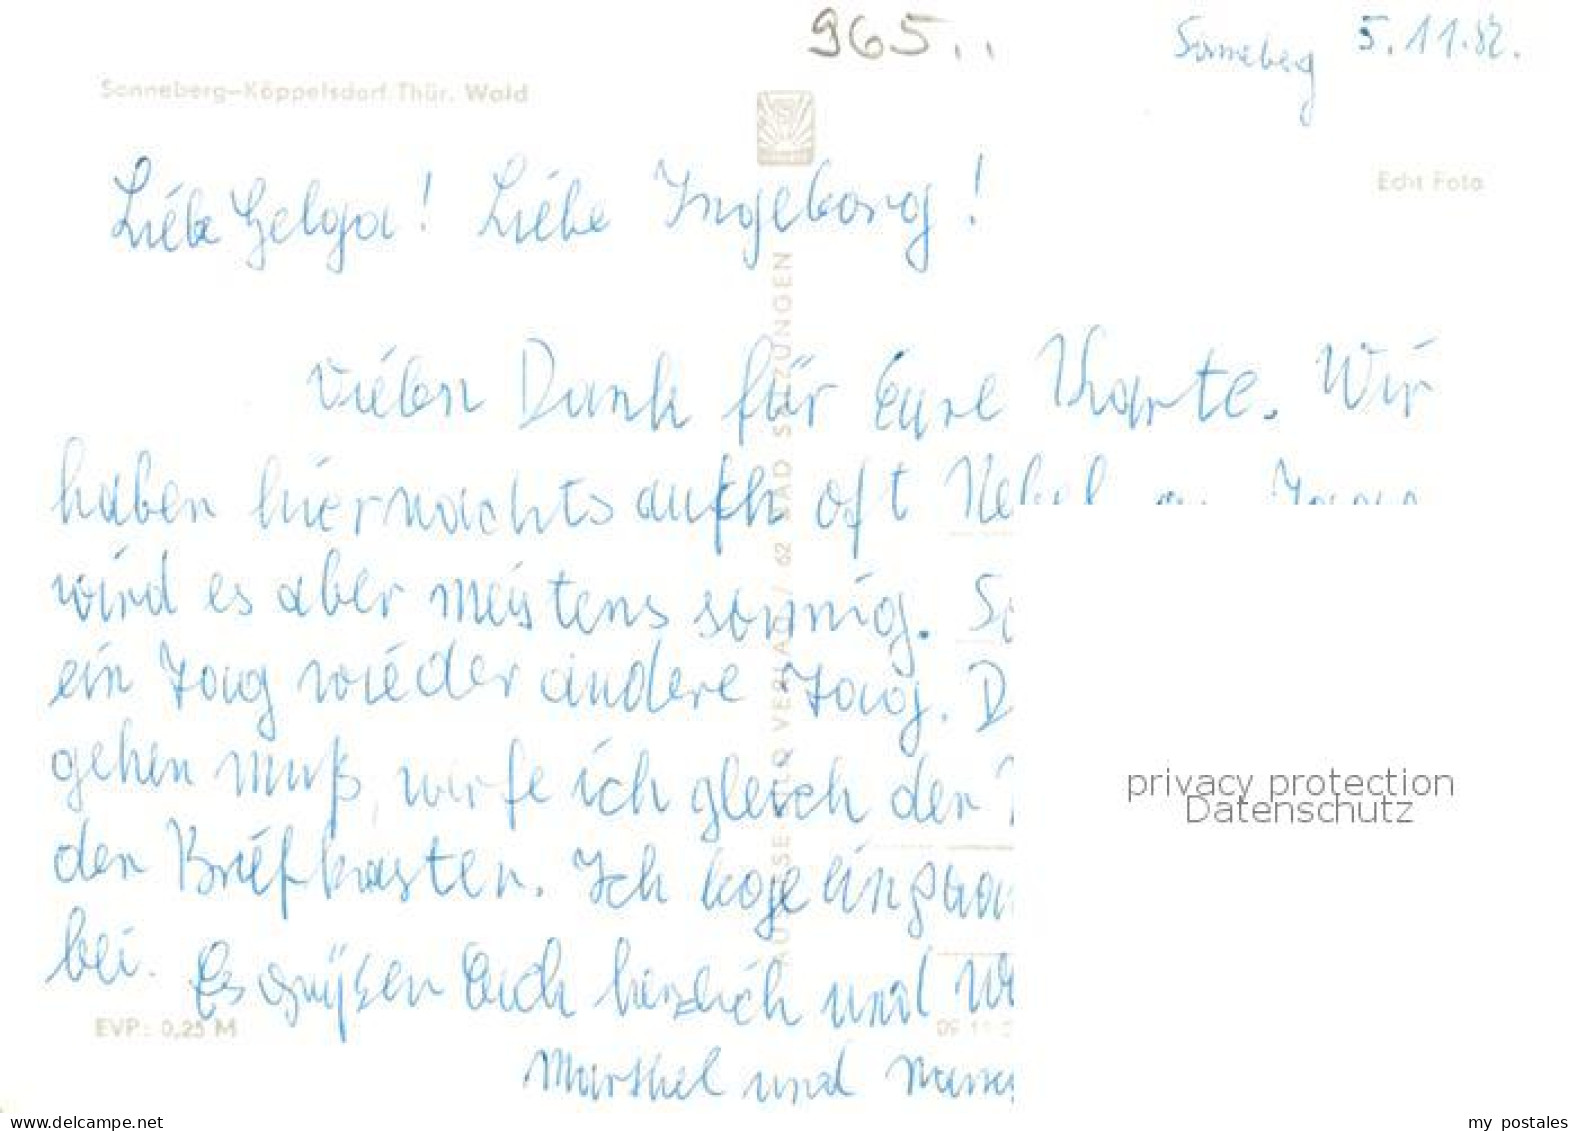 965..
Sonneberg 5.11.82.
Sonneberg-Köppelsdorf/Thür. Wald
Echt Foto
Liebe Helga! Liebe Ingeborg!
Vielen Dank für Eure Karte. Wir
haben hier nachts auch oft Nebel
wird es aber meistens sonnig.
ein Tag wieder andere Tag. D
gehen muß, wirfe ich gleich den
den Briefkasten. Ich
bei.
Es grüßen Euch herzlich und
und
EVP: 0,25 M
VERLAG / 62 BAD SALZUNGEN
privacy protection
Datenschutz
www.delcampe.net
my_postales